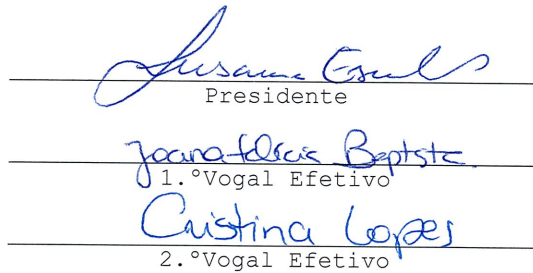 Susana
Presidente
Joana Felícia Baptista
1.ºVogal Efetivo
Cristina Lopes
2.ºVogal Efetivo